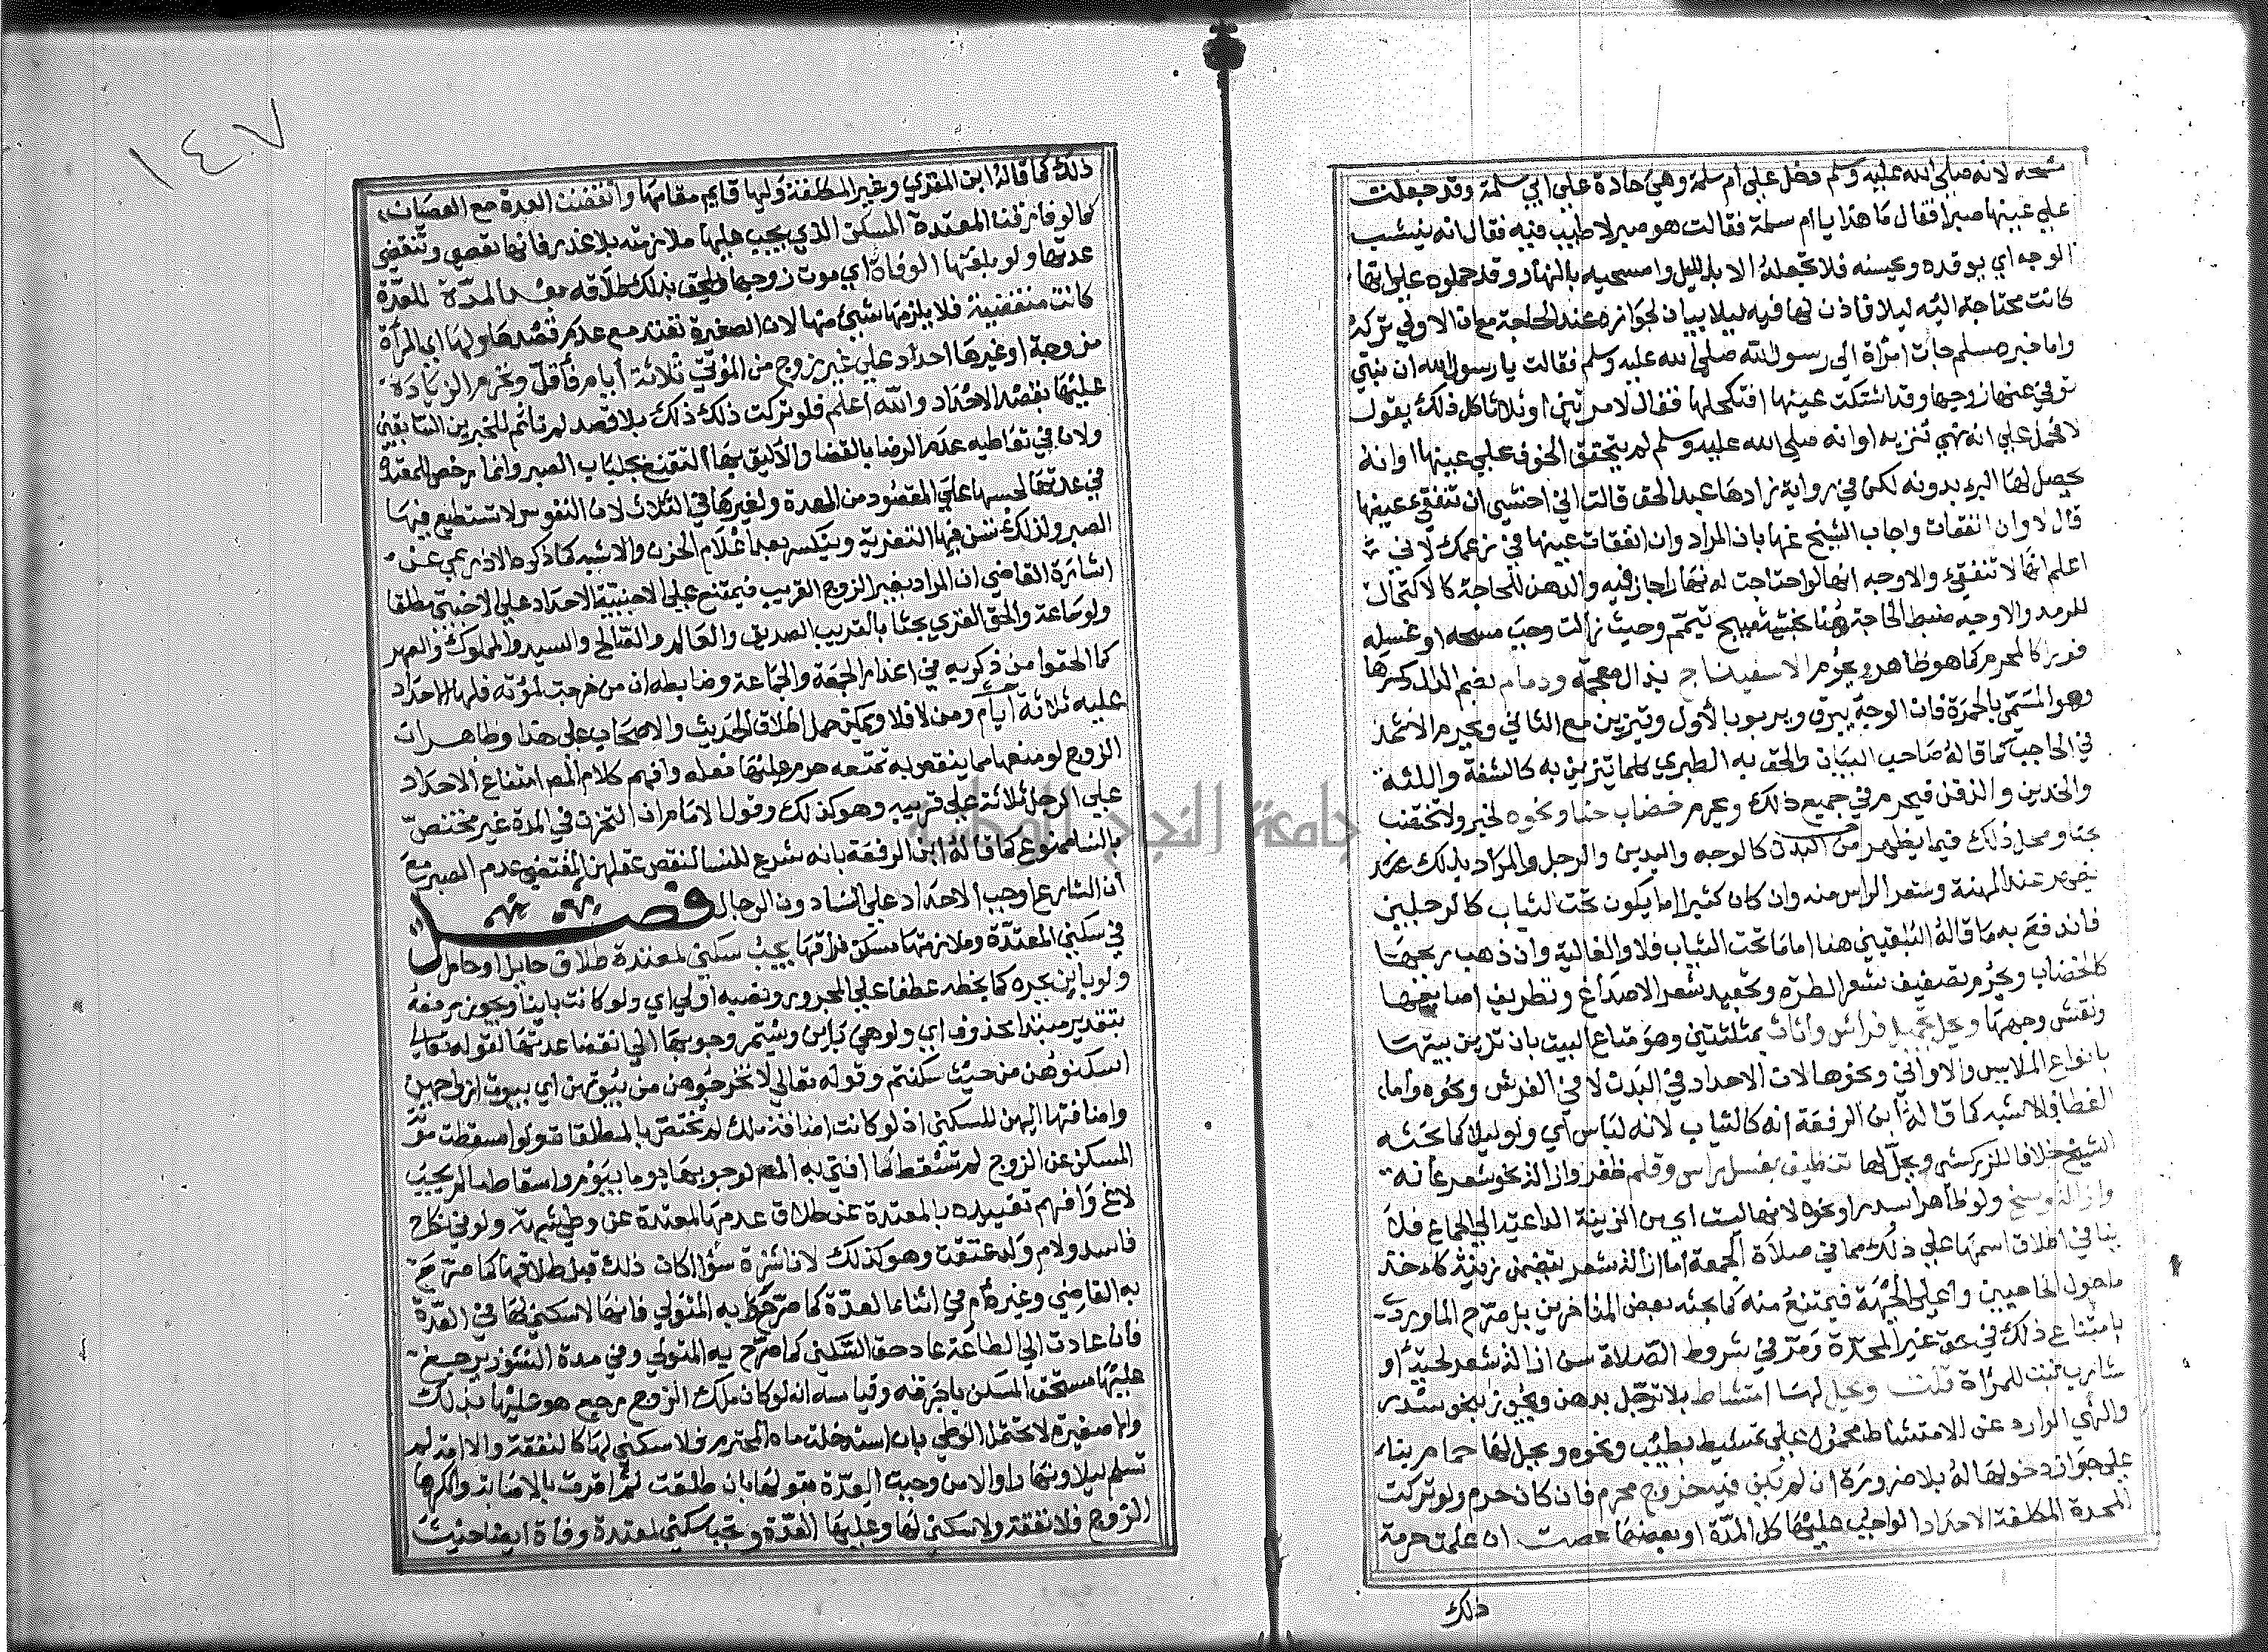 مسحه لانه صلى الله عليه وسلم دخل علي ام سلمة وهي حادة على ابي سلمة وقد جعلت
علي عينها صبرا فقال ما هذا يا ام سلمة فقالت هو صبر لا طيب فيه فقال انه يشب
الوجه اي يوقده ويحسنه فلا تجعليه الا بالليل وامسحيه بالنهار وقد حملوه على انها
كانت محتاجة اليه ليلا فاذن لها فيه ليلا بيانا لجوازه عند الحاجة مع ان الاولي تركه
واما خبر مسلم جات امراة الى رسول الله صلى الله عليه وسلم فقالت يا رسول الله ان بنتي
توفي عنها زوجها وقد اشتكت عينها افنكحلها فقال لا مرتين او ثلاثا كل ذلك يقول
لا فحمل علي انه نهي تنزيه او انه صلى الله عليه وسلم لم يتحقق الخوف علي عينها او انه
يحصل لها البرء بدونه لكن في رواية زادها عبد الحق قالت اني اخشي ان تنفقئ عينها
قال لا وان انفقات واجاب الشيخ عنها بان المراد وان انفقات عينها في زعمك لاني
اعلم انها لا تنفقئ والاوجه انها لو احتاجت له نهارا جاز فيه والدهن للحاجة كالاكتحال
للرمد والاوجه ضبط الحاجة هنا بخشية مبيح تيمم وحيث زالت وجب مسحه او غسله
فورا كالمحرم كما هو ظاهر ويحرم الاسفيذاج بذال معجمة ودمام بضم الدال وكسرها
وهو المسمي بالحمرة فان الوجه يبرق ويربو بالأول وتتزين مع الثاني ويحرم الاثمد
في الحاجب كما قاله صاحب البيان والحق به الطبري كلما تتزين به كالشفة واللثة
والخدين والذقن فيحرم في جميع ذلك ويحرم خضاب حنا ونحوه لخبر ولا تختضب
بحنا ومحل ذلك فيما يظهر من البدن كالوجه واليدين والرجل والمراد بذلك
عند المهنة وشعر الراس منه وان كان كثيرا ما يكون تحت الثياب كالرجلين
فاندفع به ما قاله البلقيني هنا اما ما تحت الثياب فلا والغالية وان ذهب ريحها
كالخضاب ويحرم تصفيف شعر الطرة وتجعيد شعر الاصداغ وتطريف اصابعها
ونقش وجهها ويحل تجميل فراش وأثاث بمثلثتين وهو متاع البيت بان تزين بيتها
بانواع الملابس والاواني ونحوها لان الاحداد في البدن لا في الفرش ونحوه واما
الغطا فالاشبه كما قاله ابن الرفعة انه كالثياب لانه لباس اي ولو ليلا كما بحثه
الشيخ خلافا للزركشي ويحل لها تنظيف بغسل راس وقلم ظفر وازالة نحو شعر عانة
وازالة وسخ ولو ظاهرا بسدر او نحوه لانها ليست اي من الزينة الداعية الي الجماع فلا
ينافي اطلاق اسمها علي ذلك مما في صلاة الجمعة اما ازالة شعر يتضمن زينة كاخذ
ما حول الحاجبين واعلي الجبهة فيمتنع منه كما بحثه بعض المتاخرين بل صرح الماوردي
بامتناع ذلك في حق غير المحدة ومر في شروط الصلاة سن ازالة شعر لحية أو
شارب نبت للمراة قلت ويحل لها امتشاط بلا ترجل بدهن ويجوز بنحو سدر
والنهي الوارد عن الامتشاط محمول علي تمشيط بطيب ونحوه ويحل لها حمام بناء
علي جواز دخولها له بلا ضرورة ان لم يكن فيه خروج محرم فان كان حرم ولو تركت
المحدة المكلفة الاحداد الواجب عليها كل المدة او بعضها عصت ان علمت حرمة
ذلك
١٤٧
ذلك كما قاله ابن المقري وغير المكلفة وليها قايم مقامها وانقضت العدة مع العصيان
كما لو فارقت المعتدة المسكن الذي يجب عليها ملازمته بلا عذر فانها تعصي وتنقضي
عدتها ولو بلغتها الوفاة اي موت زوجها والحق بذلك طلاقه بعد المدة للعدة
كانت منقضية فلا يلزمها شيئ منها لان الصغيرة تعتد مع عدم قصدها ولها اي المرأة
مزوجة او غيرها احداد علي غير زوج من الموتي ثلاثة أيام فأقل وتحرم الزيادة
عليها بقصد الاحداد والله اعلم فلو تركت ذلك بلا قصد لم تاثم للخبرين السابقين
ولان في تعاطيه عدم الرضا بالقضا والأليق بها التقنع بجلباب الصبر وانما رخص للمعتدة
في عدتها لحبسها على المقصود من العدة ولغيرها في الثلاث لان النفوس لا تستطيع فيها
الصبر ولذلك تسن فيها التعزية وينكسر بعدها أعلام الحزن والاشبه كما ذكره الاذرعي عن
اشارة القاضي ان المراد بغير الزوج القريب فيمتنع على الاجنبية الاحداد علي الاجنبي مطلقا
ولو ساعة والحق الغزي بحثا بالقريب الصديق والعالم والصالح والسيد والمملوك والصهر
كما الحقوا من ذكر به في اعذار الجمعة والجماعة وضابطه ان من حزنت لموته فلها الاحداد
عليه ثلاثة أيام ومن لا فلا ويمكن حمل اطلاق الحديث والاصحاب على هذا وظاهر ان
الزوج لو منعها مما ينقص به تمتعه حرم عليها فعله وافهم كلام المص امتناع الاحداد
على الرجل ثلاثة على قريبه وهو كذلك وقول الامام ان التحزن في المدة غير مختص
بالنسا ممنوع كما قاله ابن الرفعة بانه شرع للنسا لنقص عقلهن المقتضي عدم الصبر مع
أن الشارع اوجب الاحداد علي النسا دون الرجال فصل
في سكني المعتدة وملازمتها مسكن فراقها يجب سكني لمعتدة طلاق حايل او حامل
ولو باين بجره كما بخطه عطفا علي المجرور ونصبه اولي اي ولو كانت باينا ويجوز رفعه
بتقدير مبتدا محذوف اي ولو هي باين ويستمر وجوبها الي انقضا عدتها لقوله تعالي
اسكنوهن من حيث سكنتم وقوله تعالي لا تخرجوهن من بيوتهن اي بيوت ازواجهن
واضافتها اليهن للسكني اذ لو كانت اضافة ملك لم تختص بالمطلقات ولو اسقطت مؤنة
المسكن عن الزوج لم تسقط كما افتي به المص لوجوبها يوما بيوم واسقاط ما لم يجب
لاغ وافهم تقييده بالمعتدة عن طلاق عدمها لمعتدة عن وطئ شبهة ولو في نكاح
فاسد ولام ولد عتقت وهو كذلك لا ناشزة سوا اكان ذلك قبل طلاقها كما صرح
به القاضي وغيره أم في اثناء العدة كما صرح به المتولي فانها لا سكني لها في العدة
فان عادت الي الطاعة عاد حق السكني كما صرح به المتولي وفي مدة النشوز يرجع
عليها مستحق المسكن باجرته وقياسه انه لو كان ملك الزوج رجع هو عليها بذلك
والا صغيرة لا تحتمل الوطي بان استدخلت ماه المحترم فلا سكني لها كالنفقة والا امة لم
تسلم ليلا ونهارا والا من وجبت العدة بقولها بان طلقت ثم اقرت بالاصابة وانكرها
الزوج فلا نفقة ولا سكني لها وعليها العدة وتجب سكني لمعتدة وفاة ايضا حيث
جامعة النجاح الوطنية